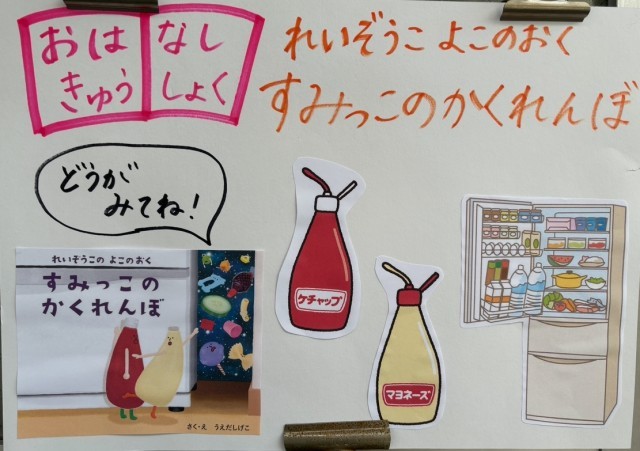 おはなし
きゅうしょく
れいぞうこ よこのおく
すみっこのかくれんぼ
どうが
みてね!
れいぞうこの よこのおく
すみっこの
かくれんぼ
さく・え うえだしげこ
ケチャップ
マヨネーズ